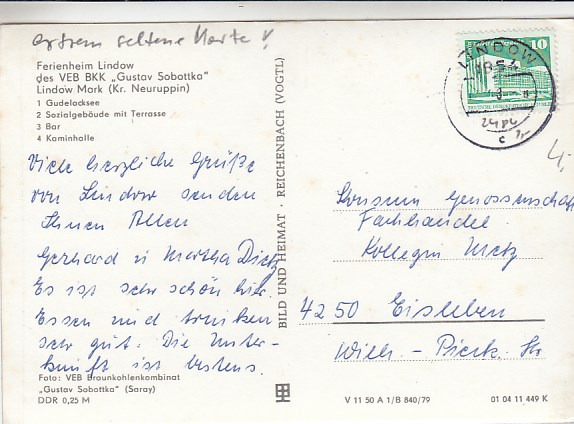 extrem seltene Karte !
Ferienheim Lindow
des VEB BKK „Gustav Sobottka"
Lindow Mark (Kr. Neuruppin)
1 Gudelacksee
2 Sozialgebäude mit Terrasse
3 Bar
4 Kaminhalle
Viele herzliche Grüße
von Lindow senden
Ihnen Allen
Gerhard u Martha Dietz
Es ist sehr schön hier.
Essen und trinken
sehr gut. Die Unter-
kunft ist bestens.
Foto: VEB Braunkohlenkombinat
„Gustav Sobottka" (Saray)
DDR 0,25 M
BILD UND HEIMAT · REICHENBACH (VOGTL)
LINDOW
1954
10
c
4,
Konsum Genossenschaft
Fachhandel
Kollegin Metz
4250 Eisleben
Wilh.-Pieck-Str
V 11 50 A 1/B 840/79
01 04 11 449 K